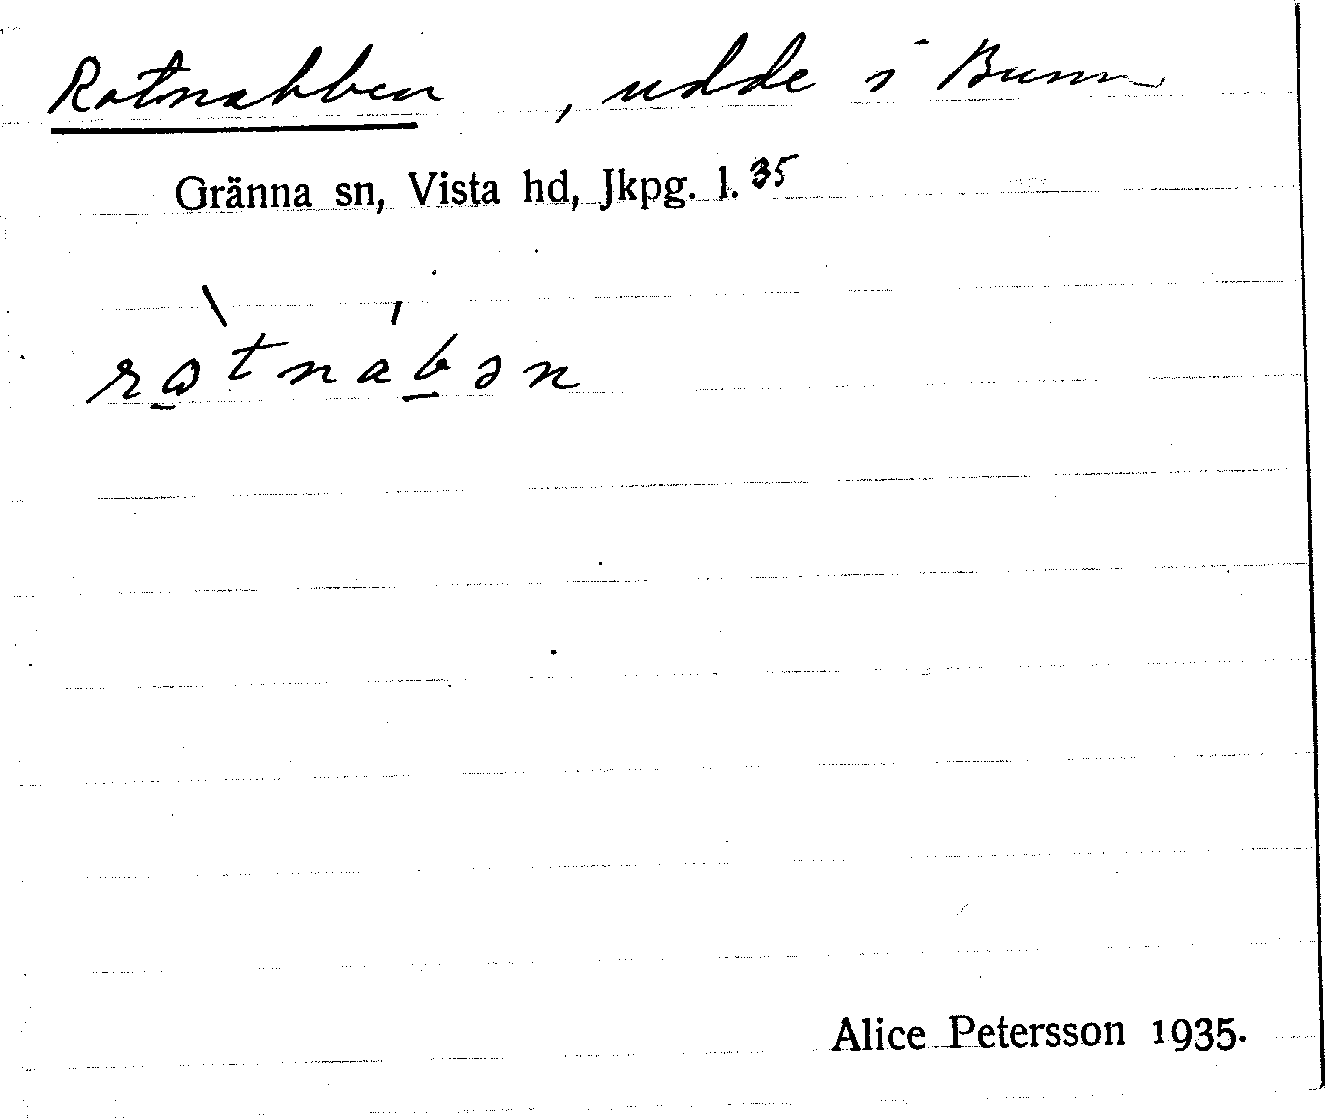 Rotnabben, udde i Bunn
Gränna sn, Vista hd, Jkpg. l. 35
rωtnabən
Alice Petersson 1935.